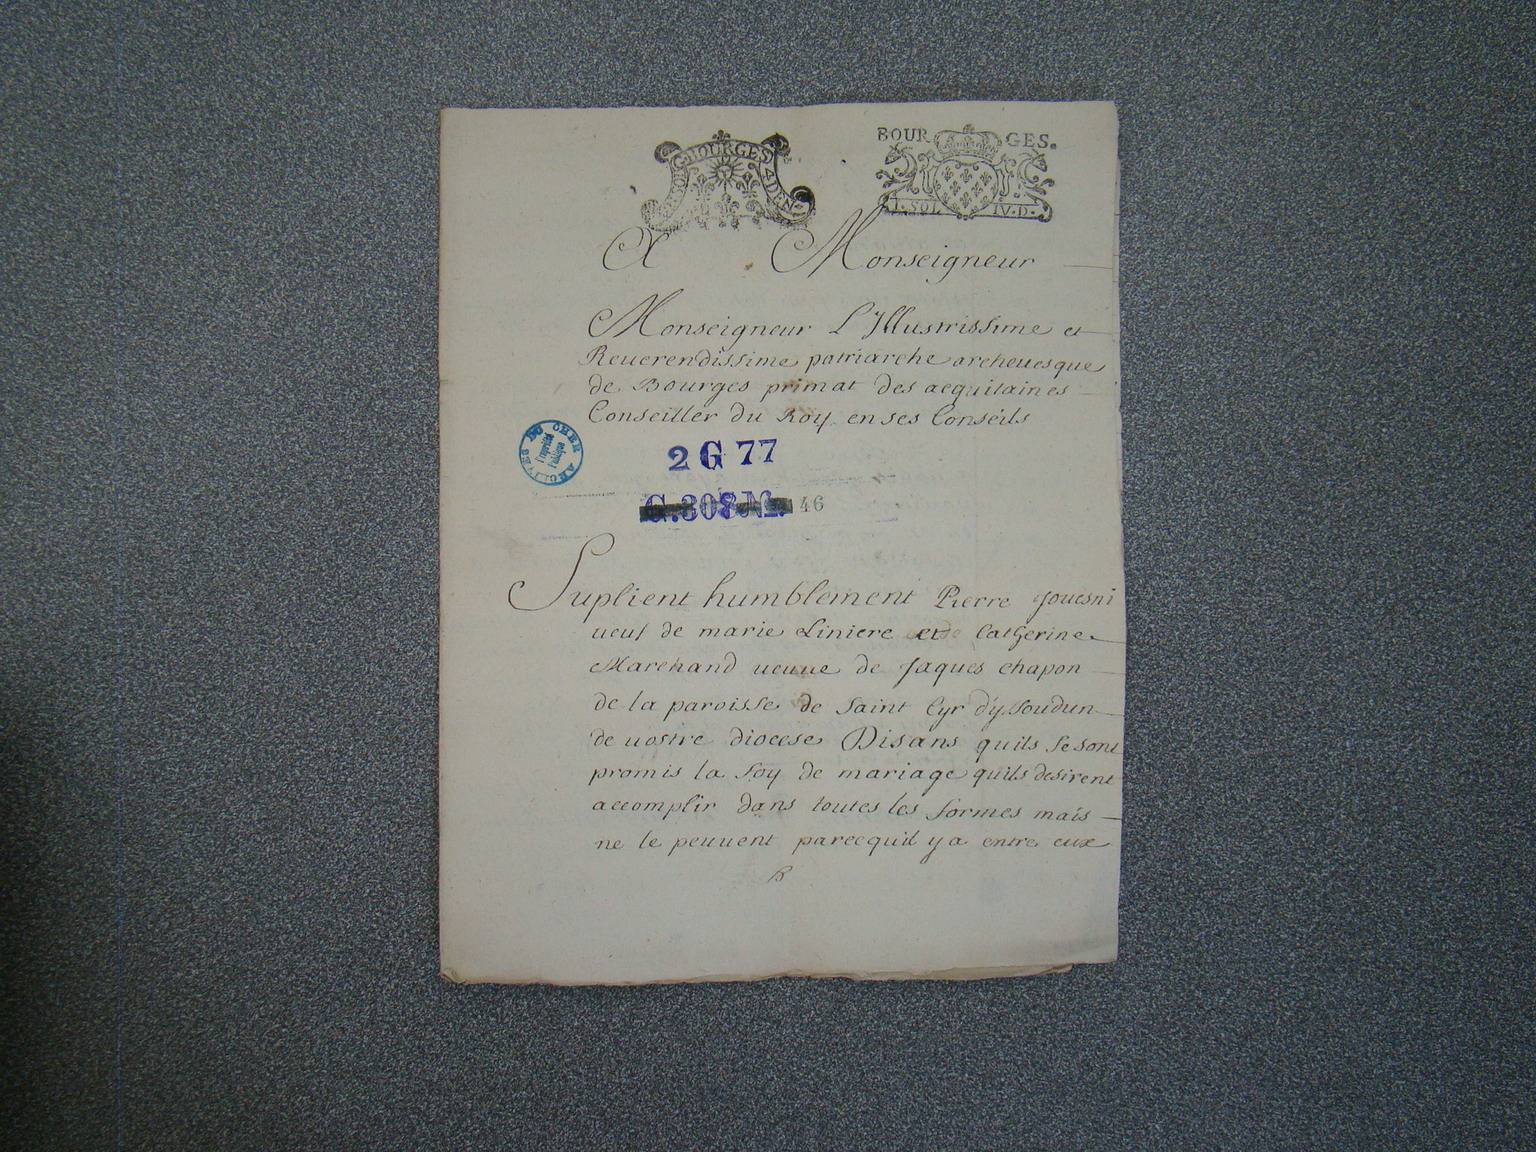 G. BOURGES 4 DEN.
BOURGES.
I. SOL IV. D.
A Monseigneur
Monseigneur L'Illustrissime et
Reuerendissime patriarche archeuesque
de Bourges primat des aequitaines
Conseiller du Roy en ses Conseils
ARCHIVES DU CHER
Propriété
Publique
2 G 77
G. 308 M. 46
Suplient humblement Pierre Jouesni
ueuf de marie Liniere et Catherine
Marchand ueuue de Jaques chapon
de la paroisse de Saint Cyr d'yssoudun
de uostre diocese Disans quils se sont
promis la foy de mariage quils desirent
accomplir dans toutes les formes mais
ne le peuuent parcequil y a entre eux